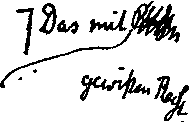 Das mit
gewißen Rech